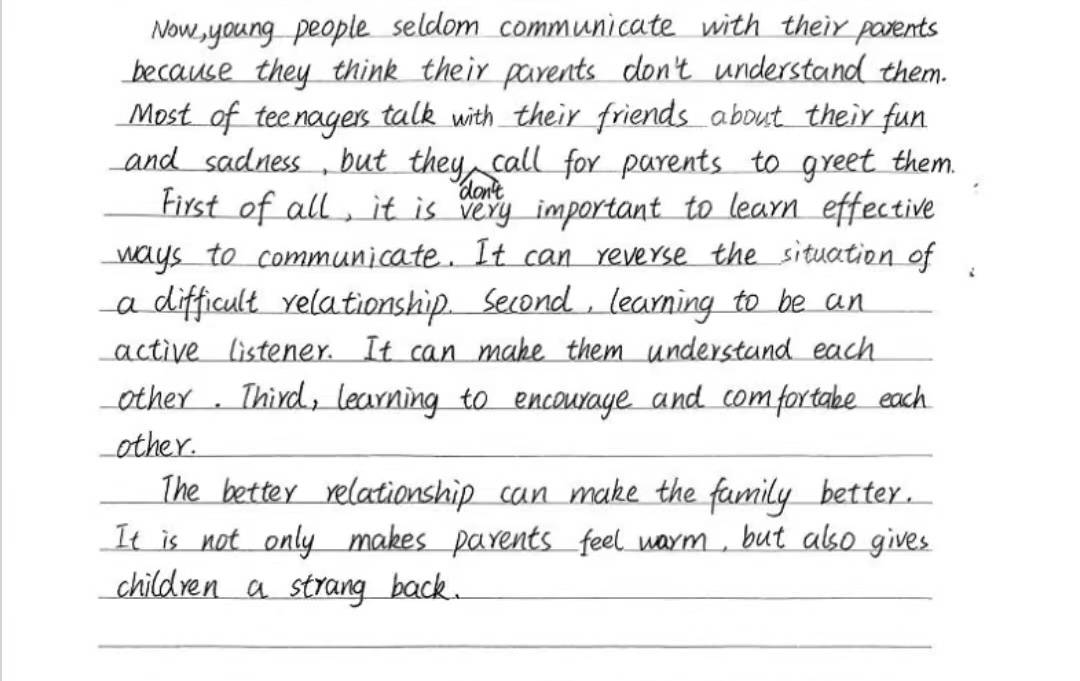 Now, young people seldom communicate with their parents
because they think their parents don't understand them.
Most of teenagers talk with their friends about their fun
and sadness , but they don't call for parents to greet them.
First of all , it is very important to learn effective
ways to communicate. It can reverse the situation of
a difficult relationship. Second , learning to be an
active listener. It can make them understand each
other . Third, learning to encourage and comfortabe each
other.
The better relationship can make the family better.
It is not only makes parents feel warm , but also gives
children a strang back.